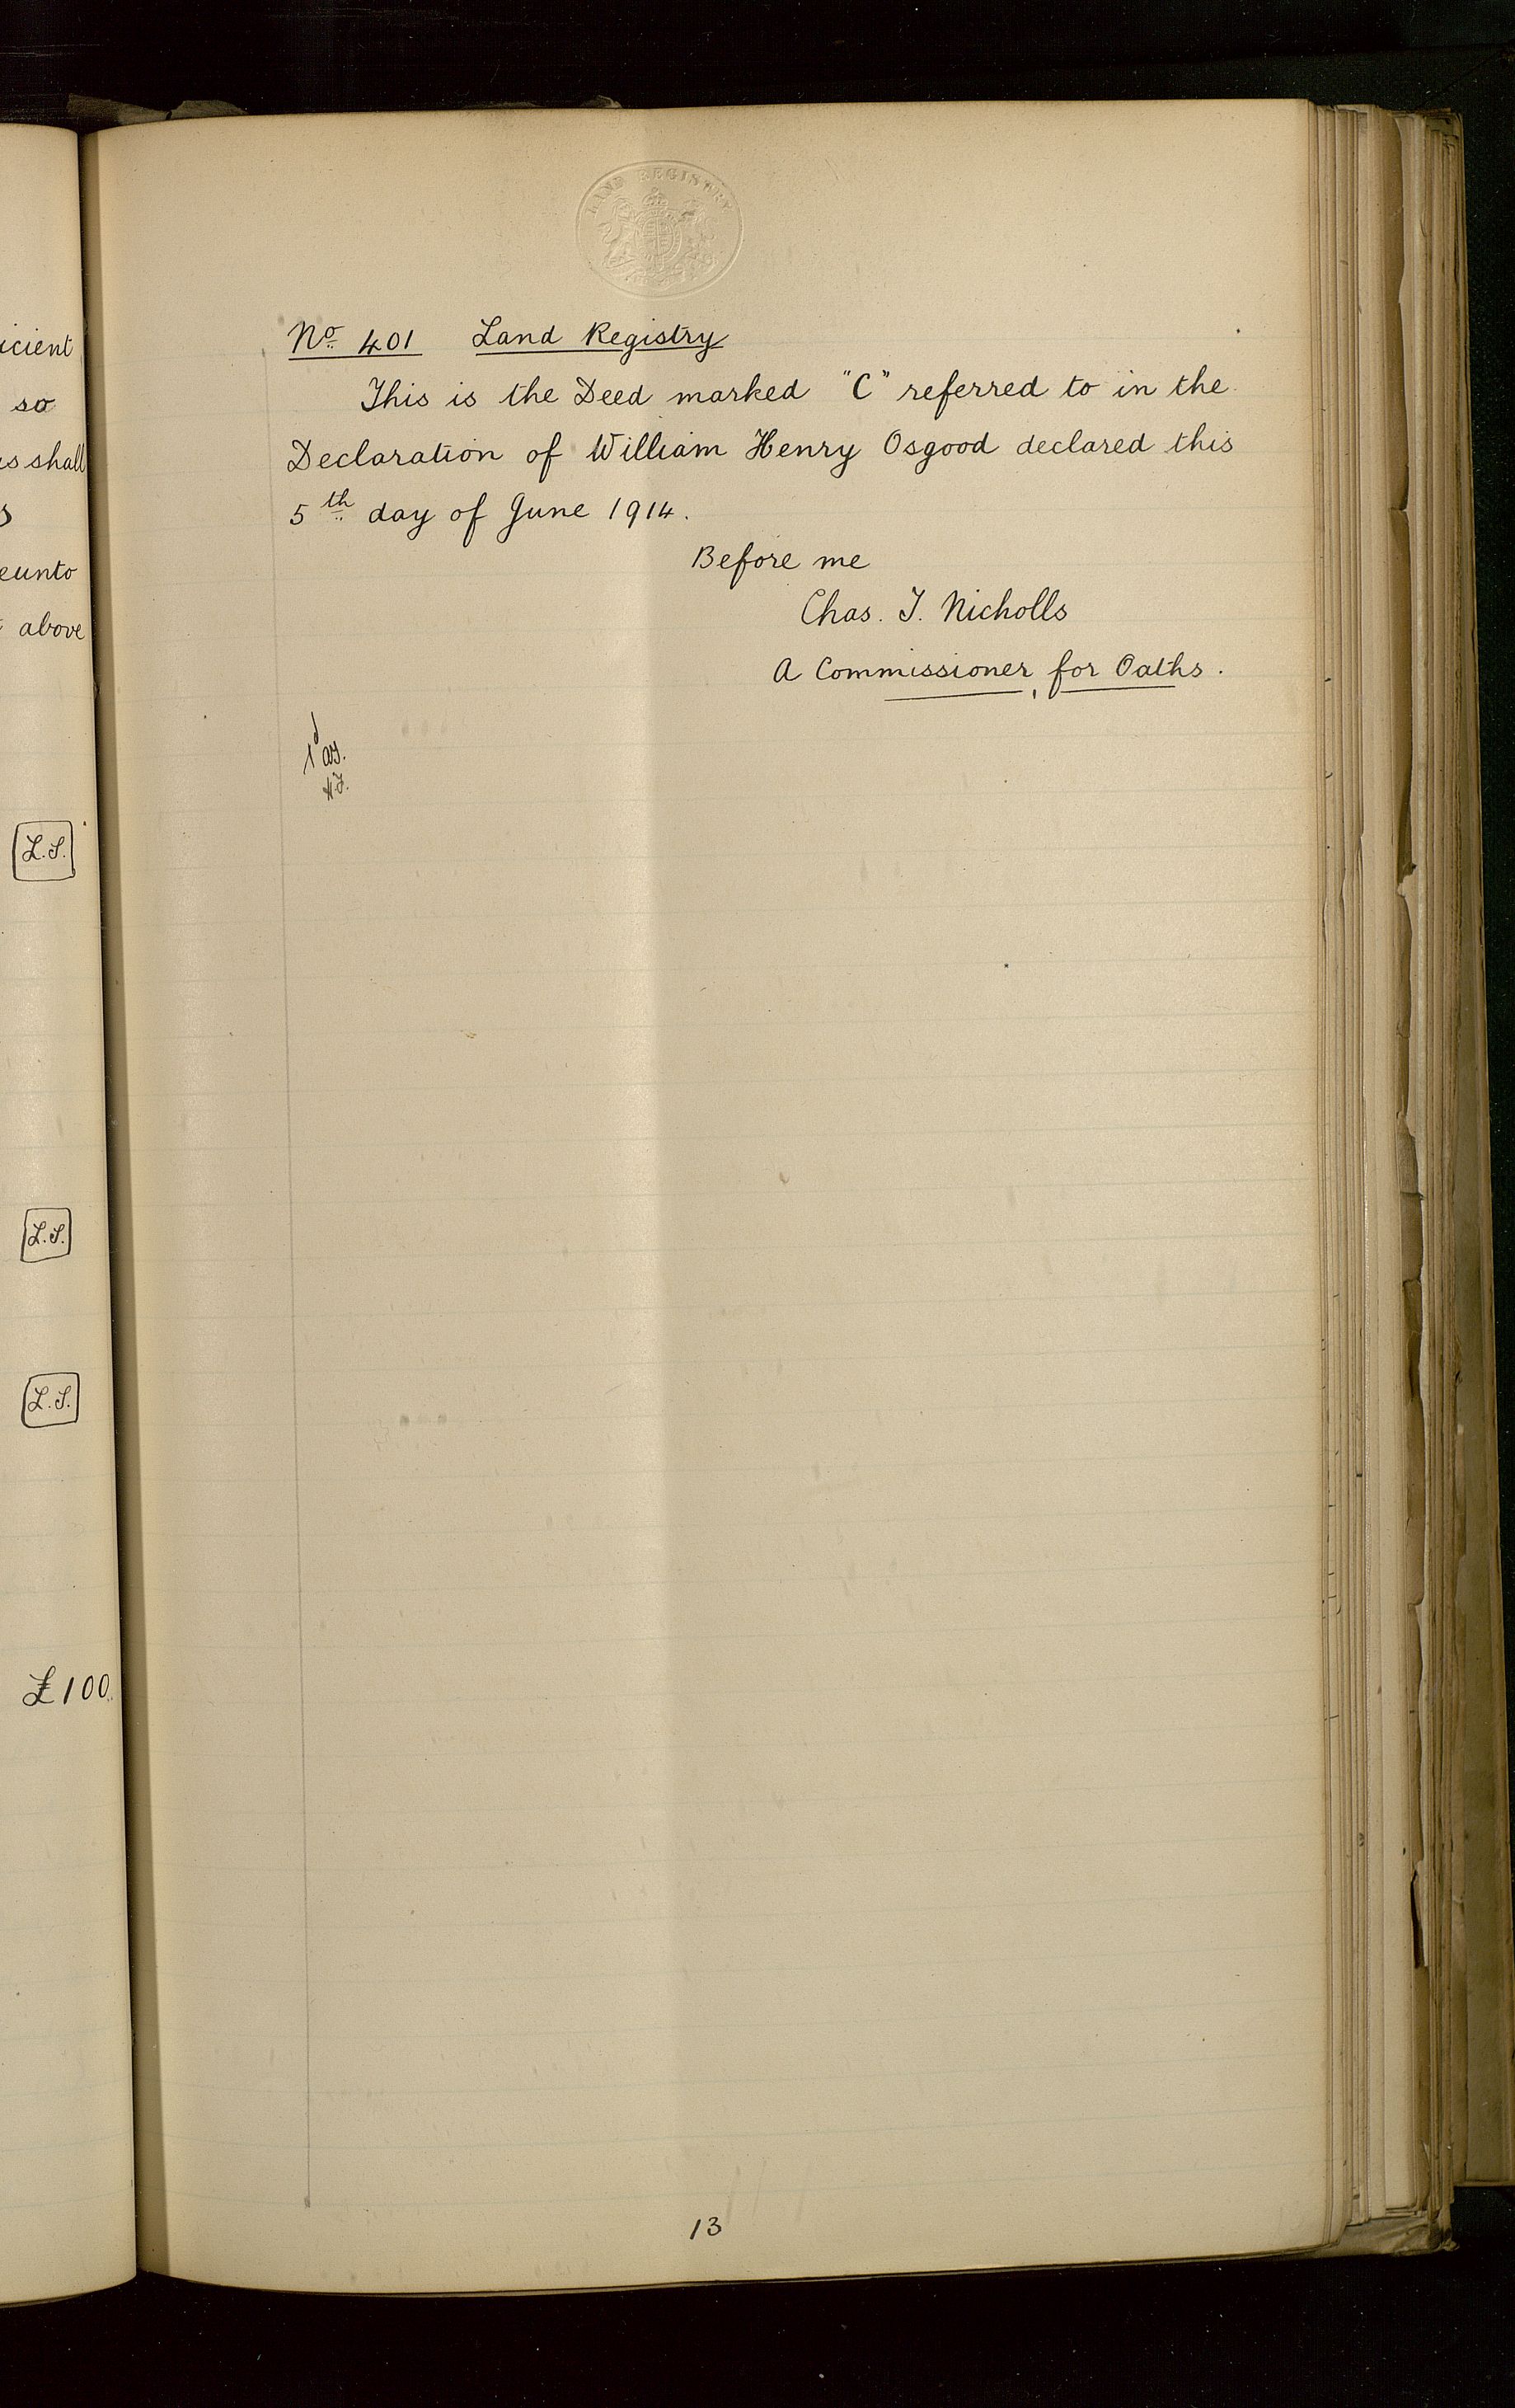 icient
so
s shall
eunto
above
L.S.
L.S.
L.S.
£100.
LAND REGISTRY
No. 401 Land Registry
This is the Deed marked "C" referred to in the
Declaration of William Henry Osgood declared this
5th day of June 1914.
Before me
Chas. T. Nicholls
A Commissioner for Oaths.
13